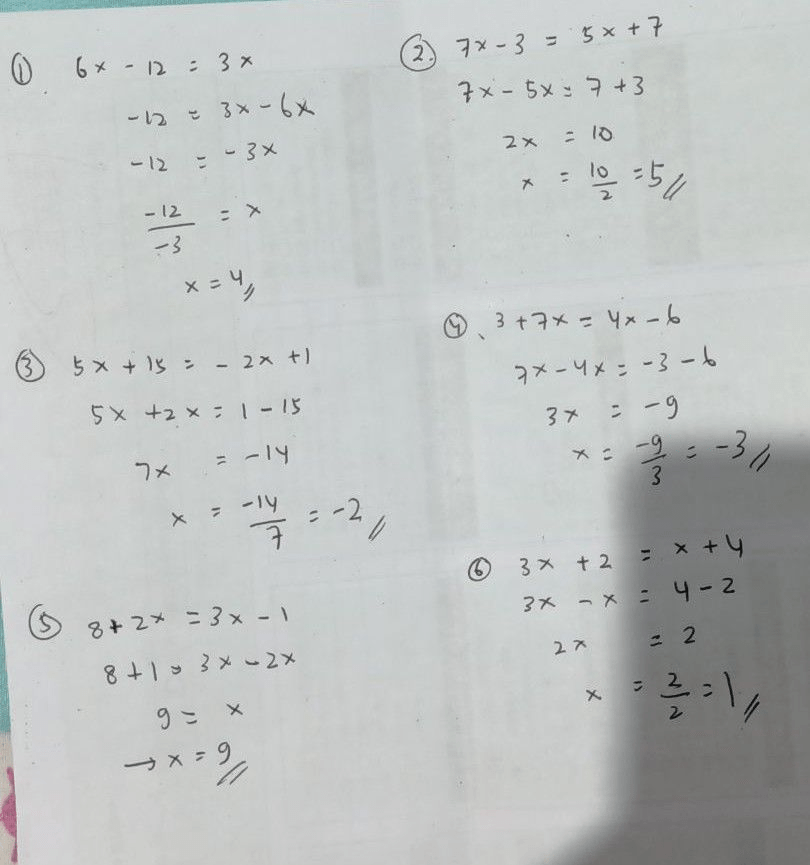 ① 6x - 12 = 3x
-12 = 3x - 6x
-12 = -3x
-12/-3 = x
x = 4//
②. 7x - 3 = 5x + 7
7x - 5x = 7 + 3
2x = 10
x = 10/2 = 5//
③ 5x + 15 = - 2x + 1
5x + 2x = 1 - 15
7x = -14
x = -14/7 = -2//
④. 3 + 7x = 4x - 6
7x - 4x = -3 - 6
3x = -9
x = -9/3 = -3//
⑤ 8 + 2x = 3x - 1
8 + 1 = 3x - 2x
9 = x
→ x = 9//
⑥ 3x + 2 = x + 4
3x - x = 4 - 2
2x = 2
x = 2/2 = 1//